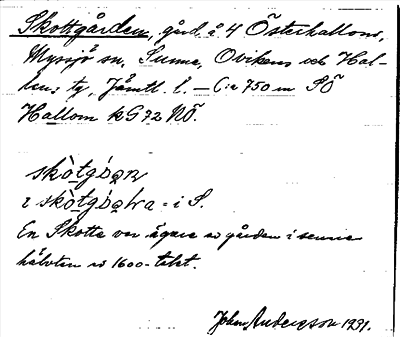 Skottgården, gård å 4 Österhallom,
Myssjö sn, Sunne, Ovikens och Hal-
lens tg, Jämtl. l. – C:a 750 m SÖ
Hallom kG 72 NÖ.
skòtgɒ́ɑɳ
i skòtgɒ́ɑɭra = i S.
En Skotte var ägare av gården i senare
hälvten av 1600-talet.
Johan Anderzson 1931.